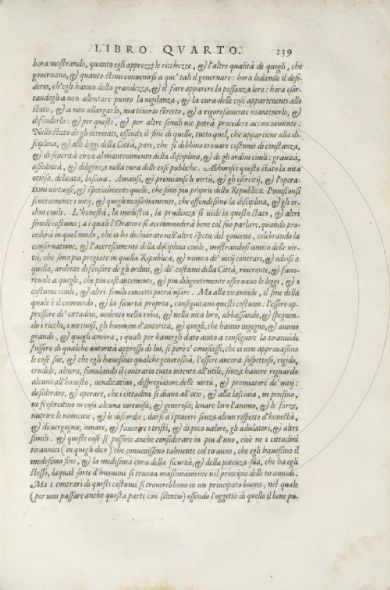 LIBRO QVARTO. 239
hora mostrando, quanto egli apprezzi le ricchezze, & l'altre qualità di quegli, che
gouernano, & quanto stimi conuenirsi a que' tali il gouernare: hora lodando il desi-
derio, ch'egli hanno della grandezza, & il fare apparere la possanza loro: hora esor-
tandogli a non allentare punto la uigilanza, & la cura delle cose appartenenti allo
stato, & a non allargarlo, ma tenerlo stretto, & a rigorosamente mantenerlo, &
difenderlo: & per queste, & per altre simili uie potrà procedere acconciamente.
Nello stato de gli ottimati, essendo il fine di quello, tutto quel, che appartiene alla di-
sciplina, & alle leggi della Città, pare, che si debbino trouare costumi di constanza,
& di seuerità circa al mantenimento della disciplina, & de gli ordini ciuili: grauità,
assiduità, & diligenza nella cura delle cose publiche. Abhorisce questo stato la uita
otiosa, delicata, lasciua. Amansi, & premiansi le uirtù, & gli esercitij, & l'opera-
tioni uirtuose, & spetialmente quelle, che sono piu proprie della Republica. Puniscensi
seueramente i uitij, & quegli massimamente, che offendessino la disciplina, & gli or-
dini ciuili. L'honestà, la modestia, la prudenza si uede in questo stato, & altri
simili costumi; a i quali l'Oratore si accommoderà bene col suo parlare, quando pro-
cederà in quel modo, che io ho discorso nell'altre spetie del gouerno, celebrando la
conseruatione, & l'accrescimento della disciplina ciuile, mostrandosi amico delle uir-
tù, che sono piu pregiate in quella Republica, & nimico de' uitij contrarij, & odiosi a
quella, ardente difensore de gli ordini, & de' costumi della Città, reuerente, & fauo-
reuole a quegli, che piu constantemente, & piu diligentemente osseruano le leggi, & i
costumi ciuili, & altri simili concetti potrà usare. Ma alla tirannide, il fine della
quale è il commodo, & la sicurtà propria, conseguitano questi costumi: l'essere op-
pressore de' cittadini, uiolento nella roba, & nella uita loro, abbassando, & spegnen-
do i ricchi, i uirtuosi, gli huomini d'autorità, & quegli, che hanno ingegno, & animo
grande, & quegli ancora, i quali per hauergli dato aiuto a conseguire la tirannide
fussero di qualche autorità appresso di lui, se però e' conoscesse, che ei non approuassino
le cose sue, & che egli hauessino qualche generosità, l'essere ancora sospettoso, rapido,
crudele, altero, simulando il contrario tutto intento all'utile, senza hauere riguardo
alcuno all'honesto, uendicatiuo, dispregiatore delle uirtù, & premiatore de' uitij:
desiderare, & operare, che i cittadini si diano all'otio, & alla lasciuia, ne pensino,
ne si esercitino in cosa alcuna uirtuosa, & generosa; leuare loro l'animo, & le forze,
nutrire le nimicitie, & le discordie; darsi a i piaceri senza alcun rispetto d'honestà,
& di uergogna; amare, & fauorire i tristi, & di poco ualore, gli adulatori, & altri
simili. & queste cose si possino anche considerare in piu d'uno, cioè ne i cittadini
tirannici (in quegli dico) che conuenissino talmente col tiranno, che egli hauessino il
medesimo fine, & la medesima cura della sicurtà, & della potenza sua, che ha egli
stesso, la qual sorte d'huomini si truoua massimamente nel principio delle tirannidi.
Ma i contrari di questi costumi si trouerebbono in un principato buono, nel quale
(per non passare anche questa parte con silentio) essendo l'oggetto di quello il bene pu-